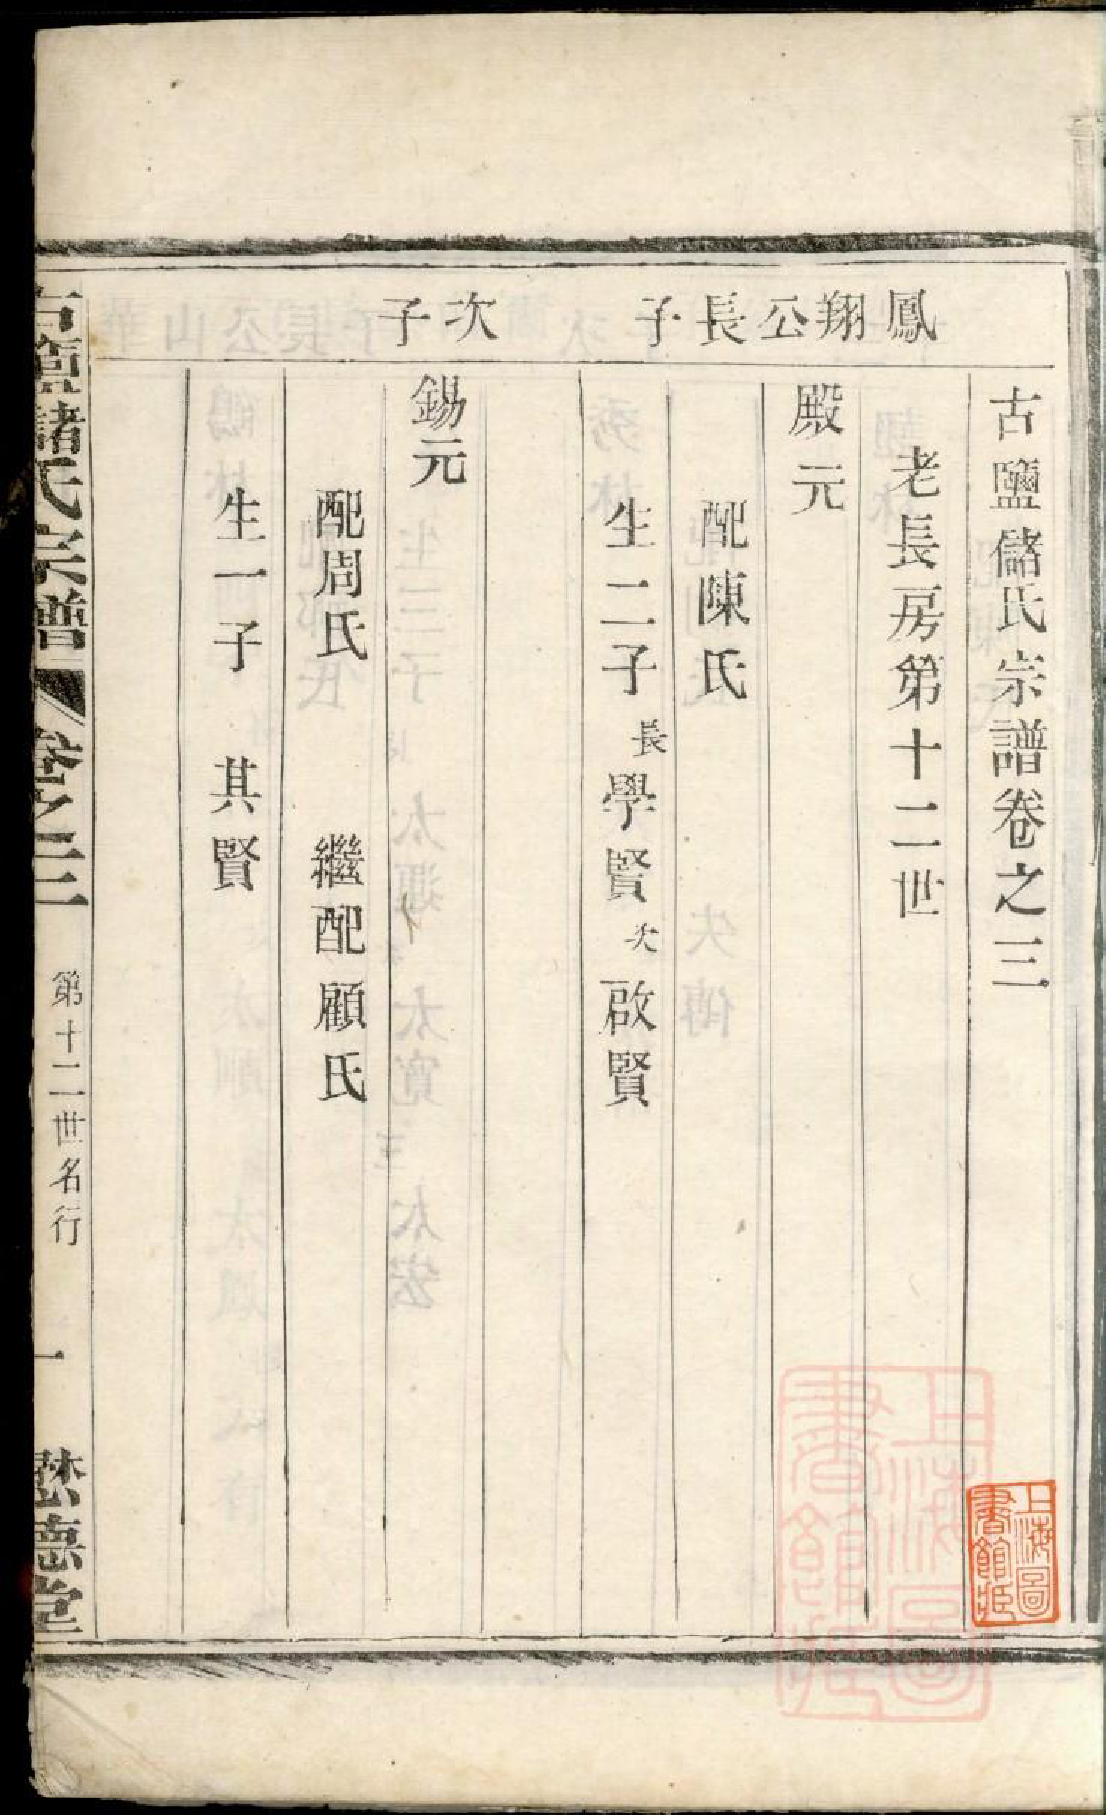 古鹽儲氏宗譜卷之三
老長房第十二世
鳳翔公長子
殿元
配陳氏
生二子長學賢次啟賢
次子
錫元
配周氏 繼配顧氏
生一子 其賢
古鹽儲氏宗譜 卷之三 第十二世名行 一 懋德堂
上海圖書館藏